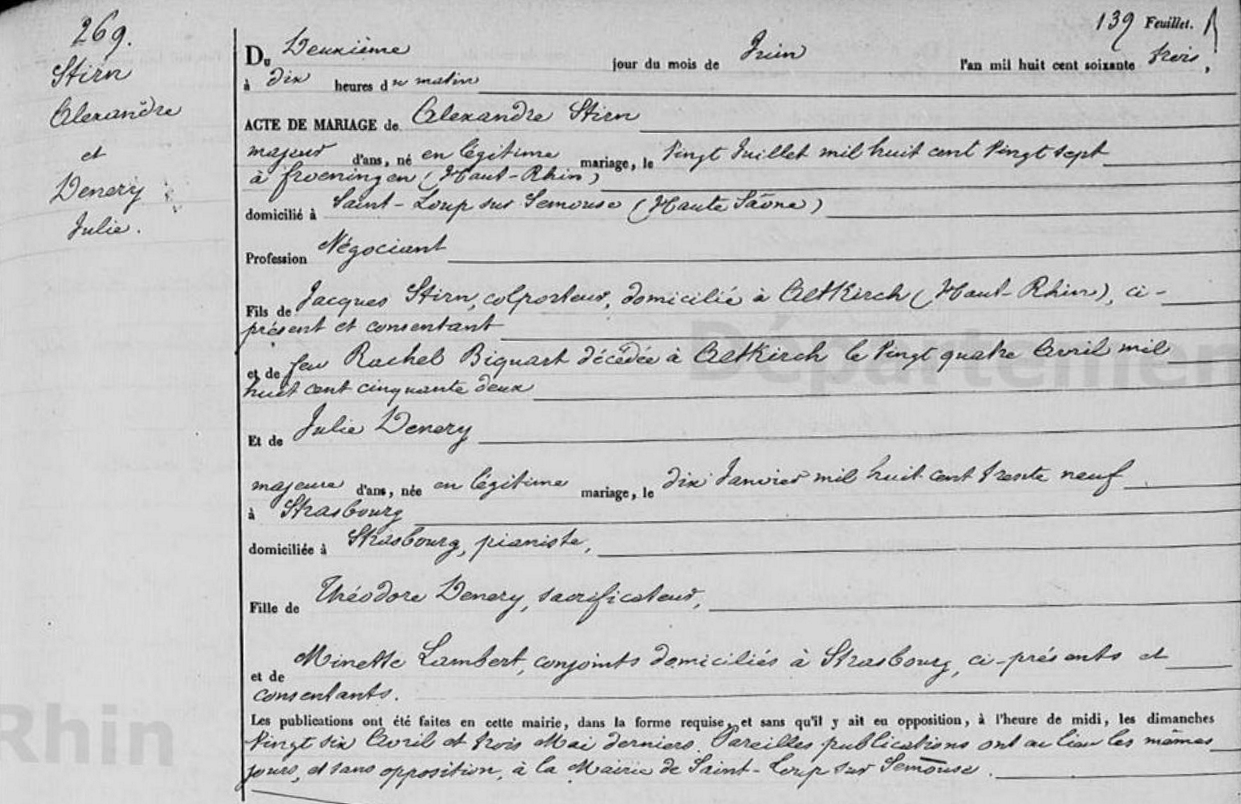 139 Feuillet.
269.
Stirn
Alexandre
et
Denery
Julie.
Du Deuxième jour du mois de Juin l'an mil huit cent soixante trois,
à dix heures du matin
ACTE DE MARIAGE de Alexandre Stirn
majeur d'ans, né en légitime mariage, le vingt Juillet mil huit cent vingt sept
à Froeningen (Haut-Rhin)
domicilié à Saint-Loup sur Semouse (Haute Saône)
Profession Négociant
Fils de Jacques Stirn, colporteur, domicilié à Altkirch (Haut-Rhin), ci-
présent et consentant
et de feu Rachel Biquart décédée à Altkirch le vingt quatre Avril mil
huit cent cinquante deux
Et de Julie Denery
majeure d'ans, née en légitime mariage, le dix Janvier mil huit cent trente neuf
à Strasbourg
domiciliée à Strasbourg, pianiste,
Fille de Théodore Denery, sacrificateur,
et de Minette Lambert, conjoints domiciliés à Strasbourg, ci-présents et
consentants.
Les publications ont été faites en cette mairie, dans la forme requise, et sans qu'il y ait eu opposition, à l'heure de midi, les dimanches
vingt six Avril et trois Mai derniers. Pareilles publications ont eu lieu les mêmes
jours, et sans opposition, à la Mairie de Saint-Loup sur Semouse.
Départemen
Rhin